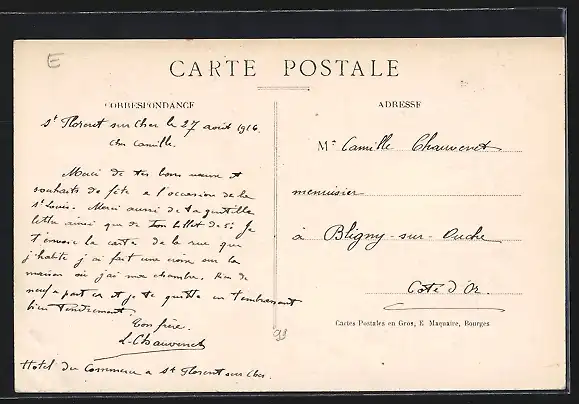 E
CARTE POSTALE
CORRESPONDANCE
St Florent sur Cher le 27 août 1916.
cher Camille.
Merci de tes bons vœux et
souhaits de fête a l'occasion de la
St Louis. Merci aussi de ta gentille
lettre ainsi que de ton billet de 5f. Je
t'envoie la carte de la rue que
j'habite j'ai fait une croix sur la
maison où j'ai ma chambre. Rien de
neuf a part ça et je te quitte en t'embrassant
bien tendrement.
Ton frère.
L. Chauvenet
Hotel du Commerce a St Florent sur Cher.
ADRESSE
Mr Camille Chauvenet
menuisier
à Bligny-sur-Ouche
Cote d'Or.
Cartes Postales en Gros, E. Maquaire, Bourges
93